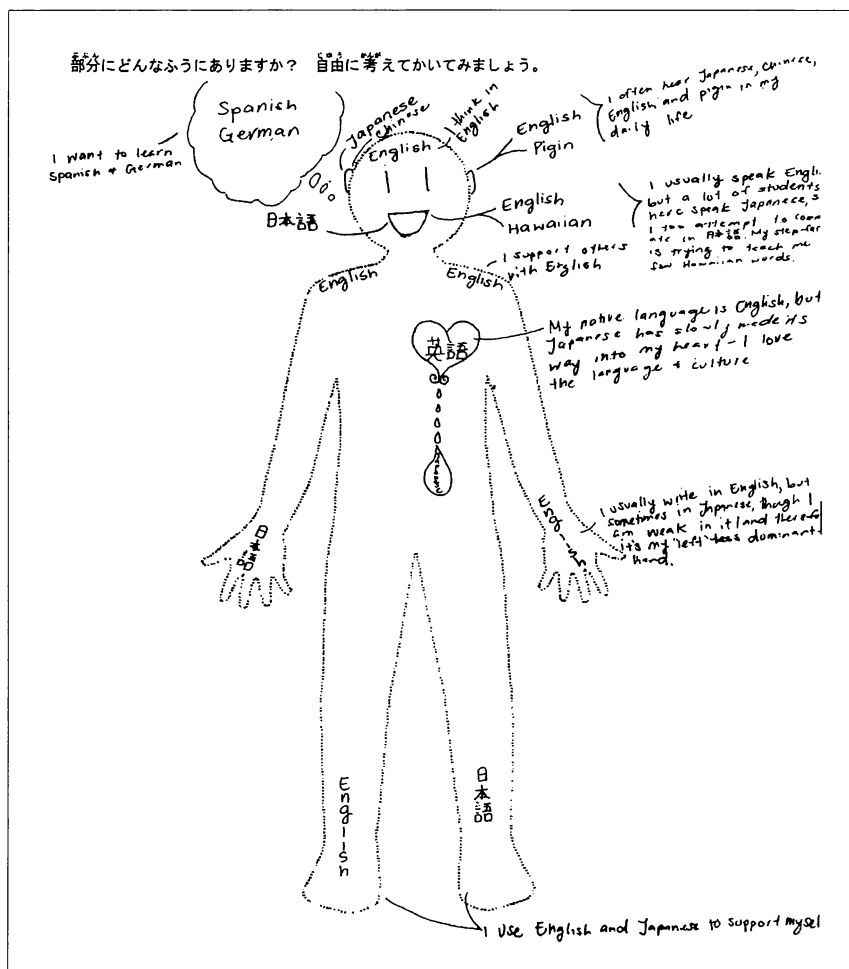 部分にどんなふうにありますか？ 自由に考えてかいてみましょう。
Spanish
German
I want to learn
Spanish & German
Japanese
Chinese
I think in
English
English
English
Pigin
I often hear Japanese, Chinese,
English and pigin in my
daily life
日本語
English
Hawaiian
I usually speak Engli
but a lot of students
here speak Japanese, s
I too attempt to com
ate in 日本語. My step-fa
is trying to teach me
few Hawaiian words.
English
English
I support others
with English
英語
My native language is English, but
Japanese has slowly made its
way into my heart - I love
the language & culture
Japanese
日本語
English
I usually write in English, but
sometimes in Japanese, though I
am weak in it (and therefo
it's my 'left' less dominant
hand.
English
日本語
I use English and Japanese to support mysel